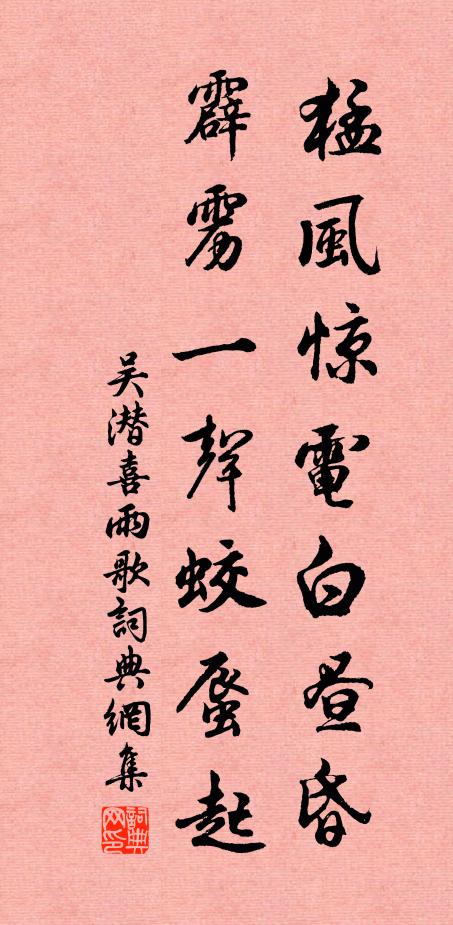 猛風惊電白昼昏
霹雳一聲蛟蜃起
吴潜喜雨歌詞典網集
詞典网印